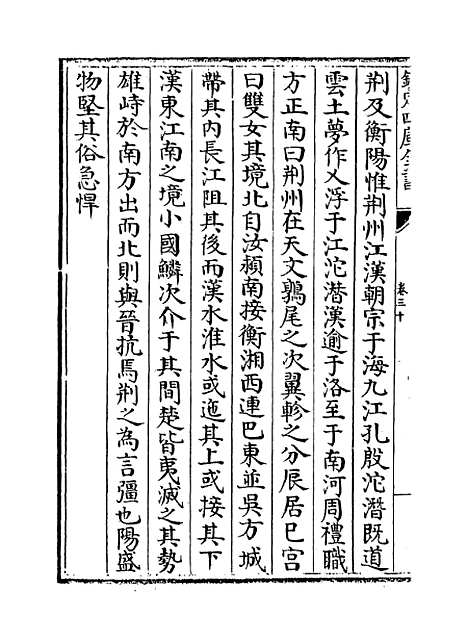 欽定四庫全書
卷三十
荆及衡陽惟荆州江漢朝宗于海九江孔殷沱潛既道
雲土夢作乂浮于江沱潛漢逾于洛至于南河周禮職
方正南曰荆州在天文鶉尾之次翼軫之分辰居巳宫
曰雙女其境北自汝潁南接衡湘西連巴東並吳方城
帶其内長江阻其後而漢水淮水或迤其上或接其下
漢東江南之境小國鱗次介于其間楚皆夷滅之其勢
雄峙於南方出而北則與晉抗焉荆之為言彊也陽盛
物堅其俗急悍